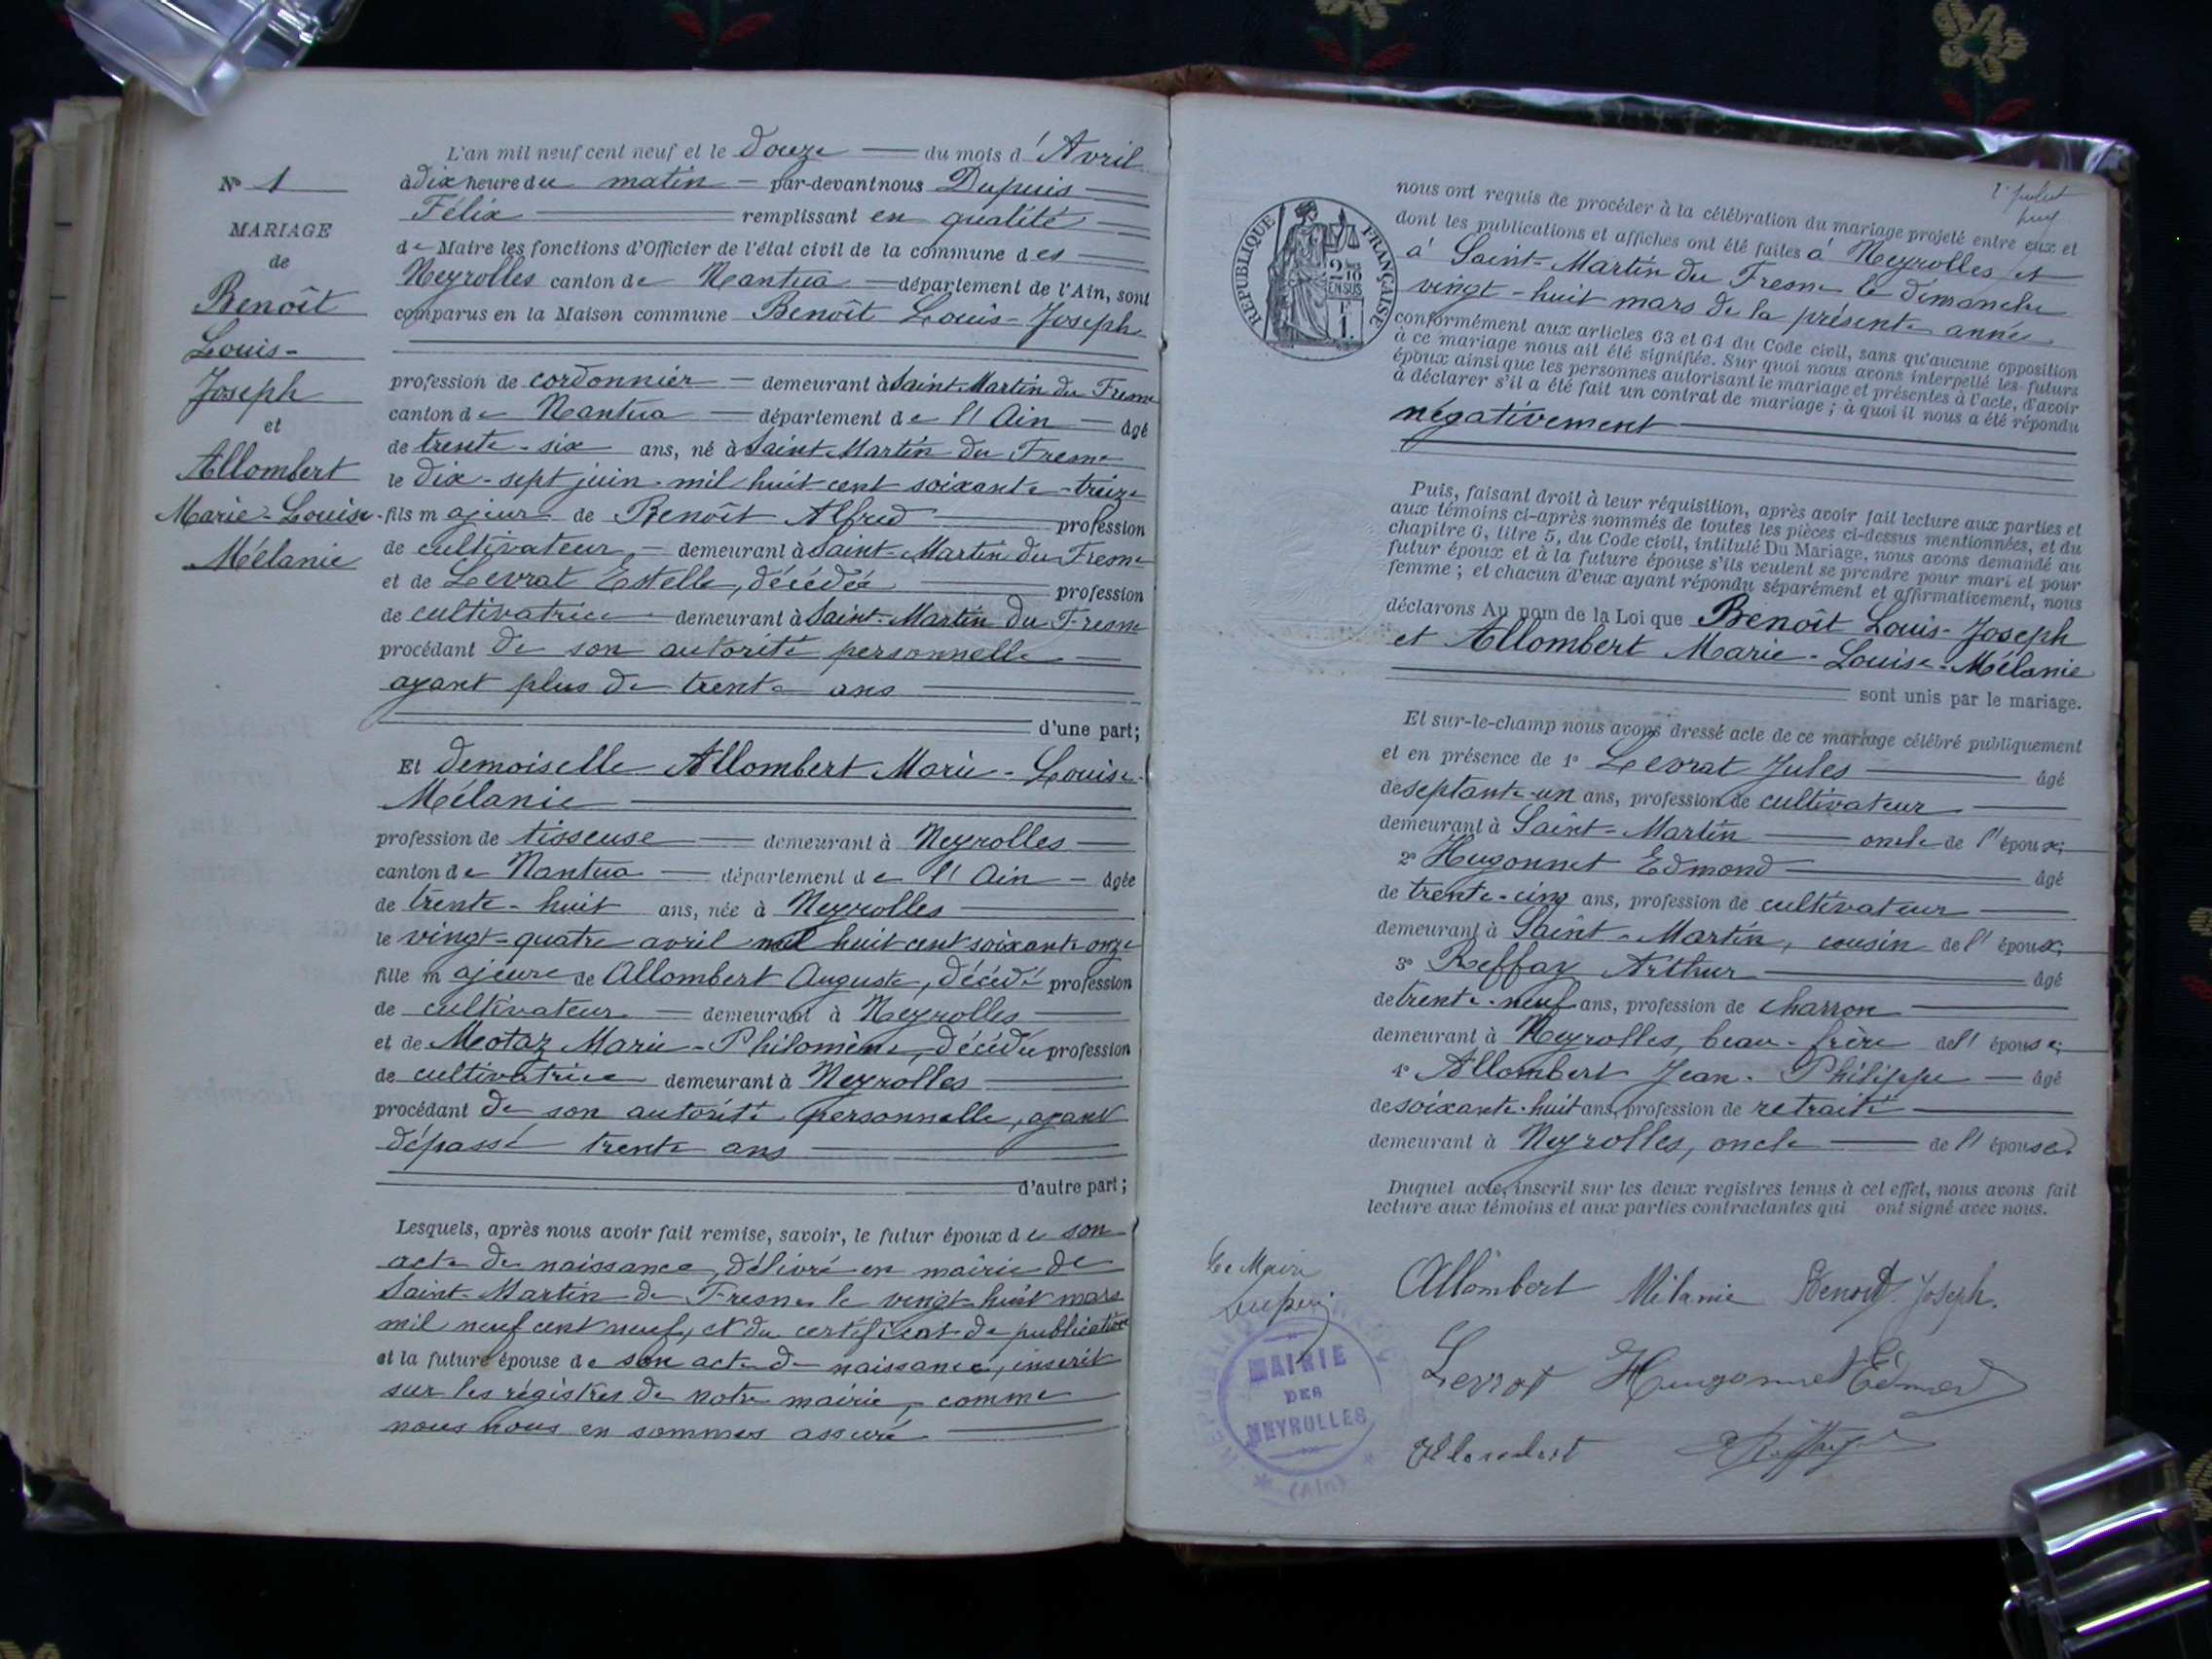 L'an mil neuf cent neuf et le Douze du mois d'Avril
N° 1
à dix heure du matin par-devant nous Dupuis
Félix remplissant en qualité
MARIAGE
de Maire les fonctions d'Officier de l'état civil de la commune des
de
Neyrolles canton de Nantua département de l'Ain, sont
Benoît
comparus en la Maison commune Benoît Louis-Joseph
Louis-
Joseph
profession de cordonnier demeurant à Saint-Martin du Fresne
et
canton de Nantua département de l'Ain âgé
de trente-six ans, né à Saint-Martin du Fresne
Allombert
le dix-sept juin mil huit cent soixante-treize
Marie-Louise
fils majeur de Benoît Alfred profession
Mélanie
de cultivateur demeurant à Saint-Martin du Fresne
et de Levrat Estelle, décédée profession
de cultivatrice demeurant à Saint-Martin du Fresne
procédant de son autorité personnelle
ayant plus de trente ans
d'une part;
Et demoiselle Allombert Marie-Louise-
Mélanie
profession de tisseuse demeurant à Neyrolles
canton de Nantua département de l'Ain âgée
de trente-huit ans, née à Neyrolles
le vingt-quatre avril mil huit cent soixante onze
fille majeure de Allombert Auguste, décédé profession
de cultivateur demeurant à Neyrolles
et de Motaz Marie-Philomène, décédée profession
de cultivatrice demeurant à Neyrolles
procédant de son autorité personnelle, ayant
dépassé trente ans
d'autre part;
Lesquels, après nous avoir fait remise, savoir, le futur époux de son
acte de naissance, délivré en mairie de
Saint-Martin de Fresne le vingt-huit mars
mil neuf cent neuf, et du certificat de publication
et la future épouse de son acte de naissance, inscrit
sur les régistres de notre mairie, comme
nous nous en sommes assuré
nous ont requis de procéder à la célébration du mariage projeté entre eux et
dont les publications et affiches ont été faites à Neyrolles et
à Saint-Martin du Fresne le dimanche
vingt-huit mars de la présente année
REPUBLIQUE FRANÇAISE
2/10
EN SUS
F
1.
conformément aux articles 63 et 64 du Code civil, sans qu'aucune opposition
à ce mariage nous ait été signifiée. Sur quoi nous avons interpellé les futurs
époux ainsi que les personnes autorisant le mariage et présentes à l'acte, d'avoir
à déclarer s'il a été fait un contrat de mariage; à quoi il nous a été répondu
négativement
Puis, faisant droit à leur réquisition, après avoir fait lecture aux parties et
aux témoins ci-après nommés de toutes les pièces ci-dessus mentionnées, et du
chapitre 6, titre 5, du Code civil, intitulé Du Mariage, nous avons demandé au
futur époux et à la future épouse s'ils veulent se prendre pour mari et pour
femme; et chacun d'eux ayant répondu séparément et affirmativement, nous
déclarons Au nom de la Loi que Benoît Louis-Joseph
et Allombert Marie-Louise-Mélanie
sont unis par le mariage.
Et sur-le-champ nous avons dressé acte de ce mariage célébré publiquement
et en présence de 1° Levrat Jules âgé
de septante-un ans, profession de cultivateur
demeurant à Saint-Martin oncle de l'époux;
2° Hugonnet Edmond âgé
de trente-cinq ans, profession de cultivateur
demeurant à Saint-Martin, cousin de l'époux;
3° Reffay Arthur âgé
de trente-neuf ans, profession de charron
demeurant à Neyrolles, beau-frère de l'épouse;
4° Allombert Jean-Philippe âgé
de soixante-huit ans, profession de retraité
demeurant à Neyrolles, oncle de l'épouse.
Duquel acte, inscrit sur les deux registres tenus à cel effet, nous avons fait
lecture aux témoins et aux parties contractantes qui ont signé avec nous.
Le Maire
Dupuis
Allombert Mélanie Benoit Joseph.
Levrat Hugonnet Edmond
Allombert Reffay
MAIRIE
DES
NEYROLLES
(Ain)